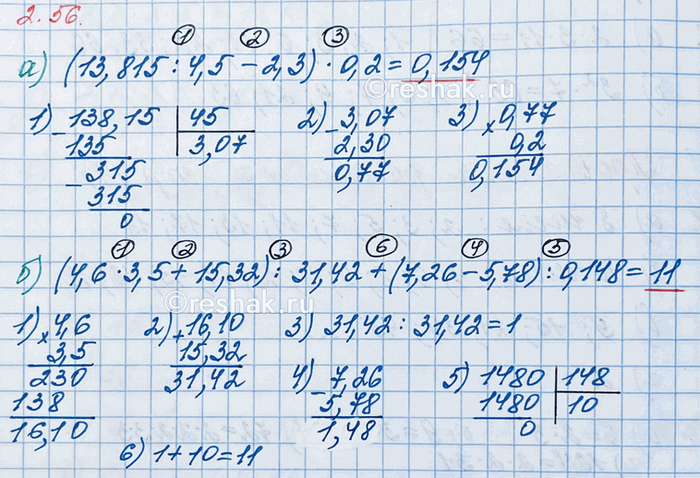 2.56.
① ② ③
а) (13,815 : 4,5 - 2,3) · 0,2 = 0,154
1) 138,15 45 2) 3,07 3) 0,77
- 135 3,07 - 2,30 × 0,2
- 315 0,77 0,154
315
0
① ② ③ ⑥ ④ ⑤
б) (4,6 · 3,5 + 15,32) : 31,42 + (7,26 - 5,78) : 0,148 = 11
1) × 4,6 2) + 16,10 3) 31,42 : 31,42 = 1
3,5 15,32
230 31,42 4) - 7,26 5) 1480 148
138 5,78 1480 10
16,10 1,48 0
6) 1 + 10 = 11
©reshak.ru
©reshak.ru